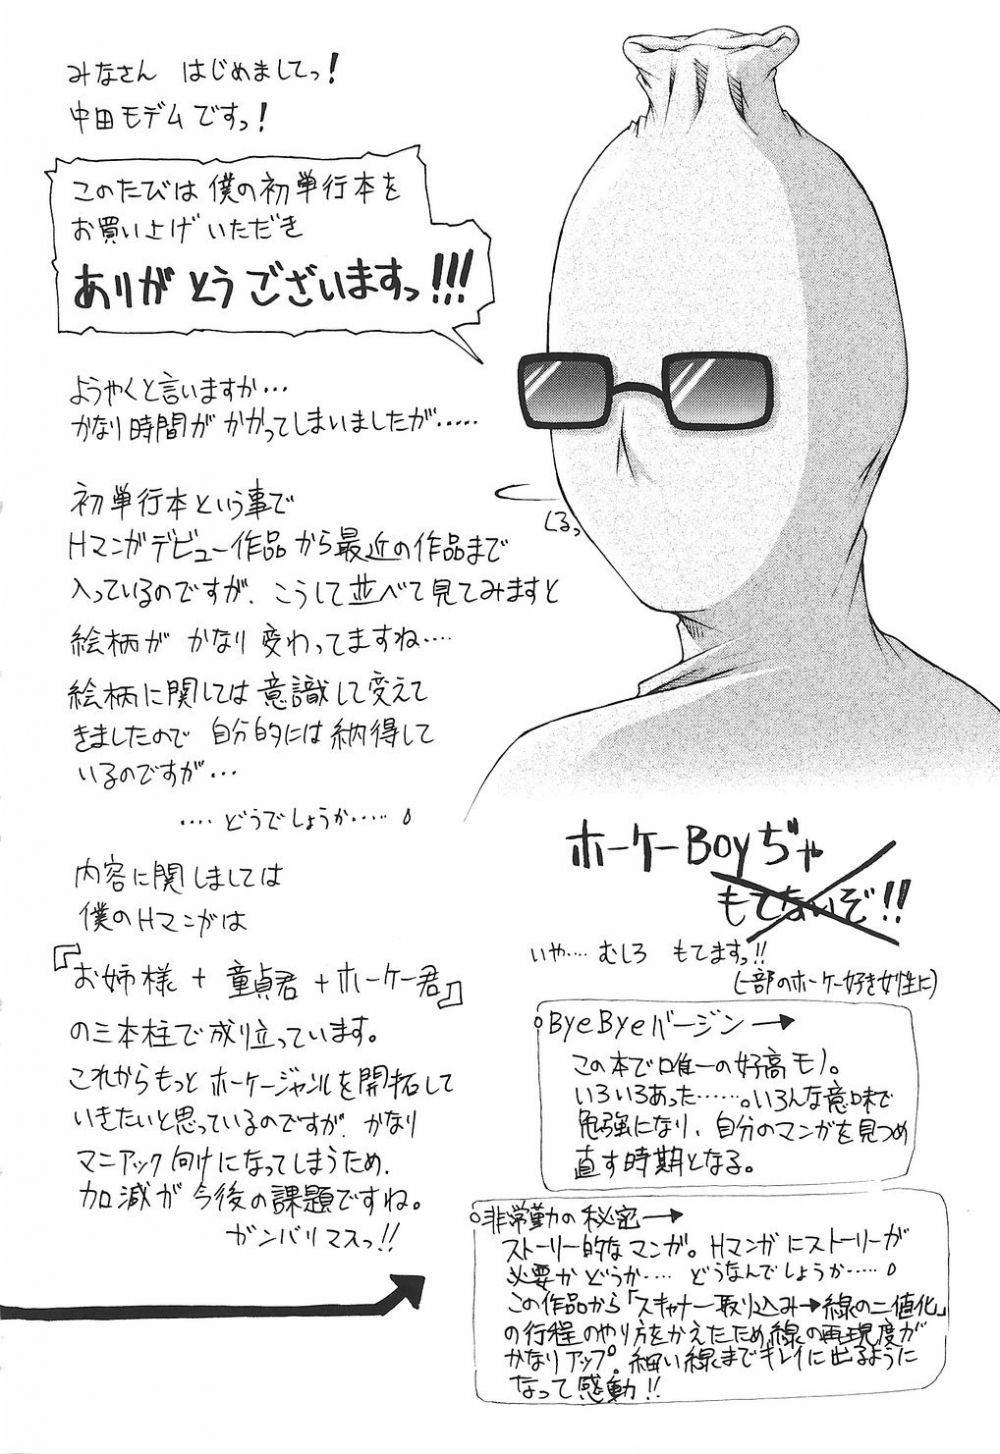 みなさん はじめましてっ!
中田モデムですっ!
このたびは僕の初単行本を
お買い上げいただき
ありがとうございますっ!!!
ようやくと言いますか…
かなり時間がかかってしまいましたが……
初単行本という事で
Hマンガデビュー作品から最近の作品まで
入っているのですが、こうして並べて見てみますと
絵柄が かなり変わってますね……
絵柄に関しては意識して変えて
きましたので 自分的には納得して
いるのですが…
……どうでしょうか……
内容に関しましては
僕のHマンガは
『お姉様+童貞君+ホーケー君』
の三本柱で成り立っています。
これからもっとホーケージャンルを開拓して
いきたいと思っているのですが、かなり
マニアック向けになってしまうため、
加減が今後の課題ですね。
ガンバリマスっ!!
くるっ
ホーケーBoyぢゃ
もてないぞ!!
いや…. むしろ もてますっ!!
(一部のホーケー好き女性に)
ByeByeバージン→
この本で唯一の好高モノ。
いろいろあった……。いろんな意味で
勉強になり、自分のマンガを見つめ
直す時期となる。
非常勤の秘密→
ストーリー的なマンガ。Hマンガにストーリーが
必要かどうか…. どうなんでしょうか……
この作品から「スキャナー取り込み→線の二値化」
の行程のやり方をかえたため、線の再現度が
かなりアップ。細い線までキレイに出るように
なって感動!!